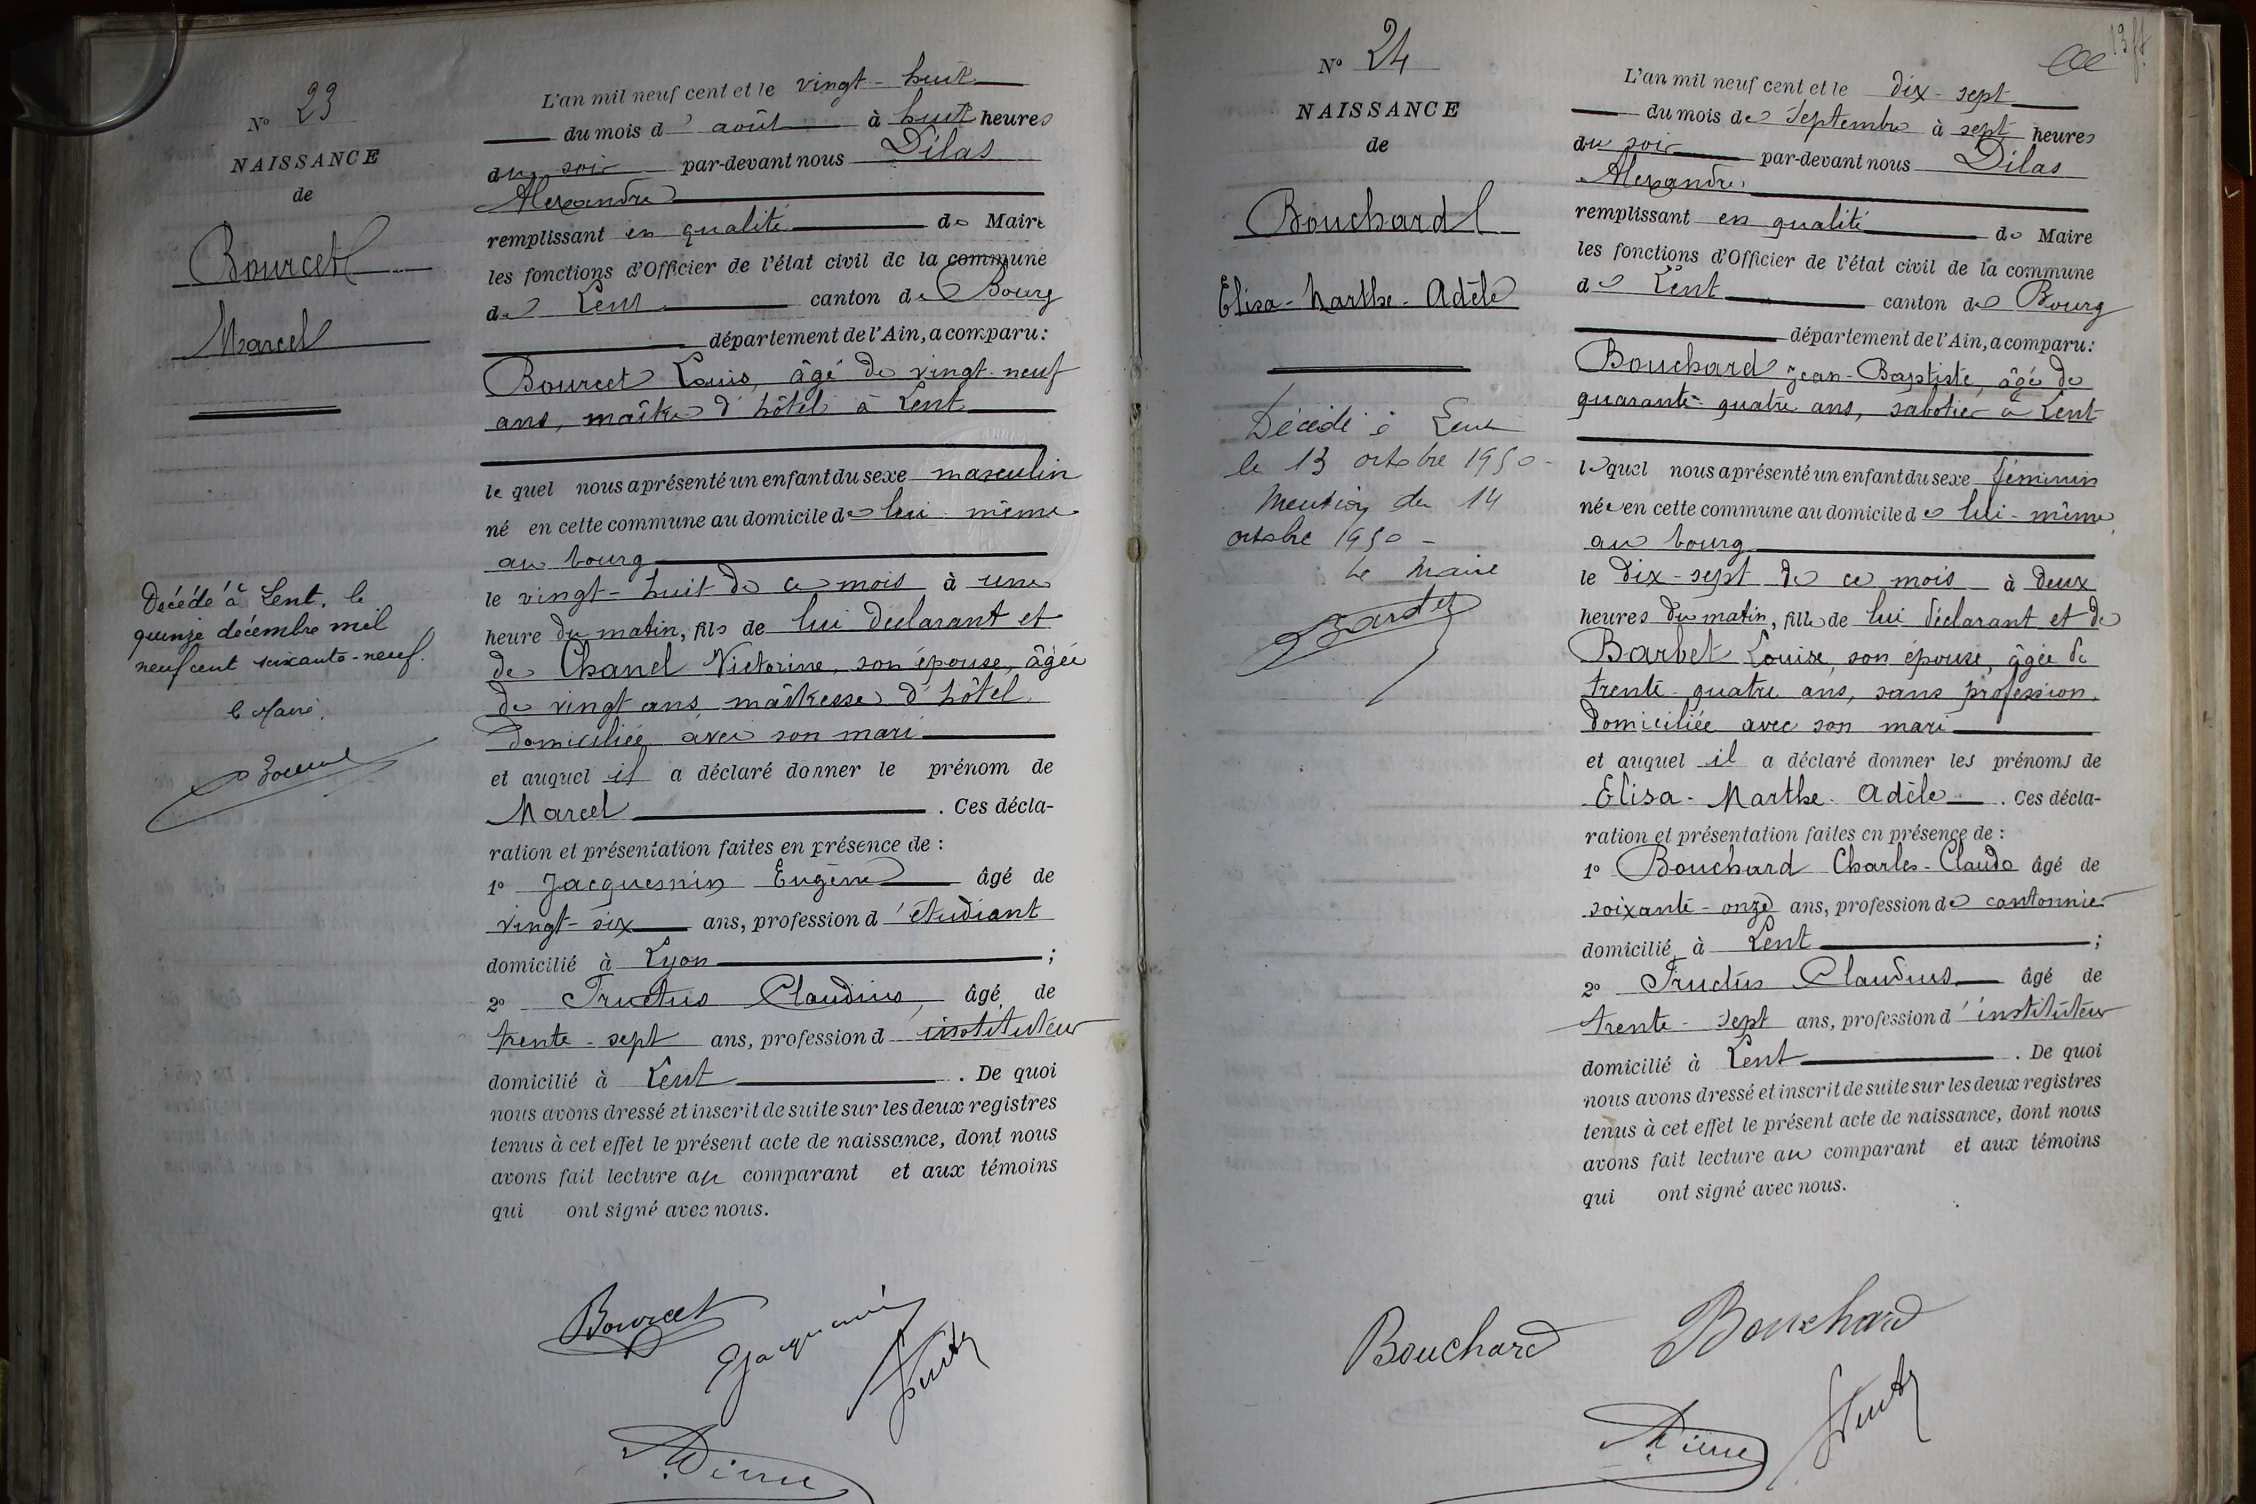 N° 23
NAISSANCE
de
Bourcet
Marcel
Décédé à Lent, le
quinze décembre mil
neuf cent soixante-neuf.
le Maire,
L'an mil neuf cent et le vingt-huit
du mois d'août à huit heures
du soir par-devant nous Dilas
Alexandre
remplissant en qualité de Maire
les fonctions d'Officier de l'état civil de la commune
de Lent canton de Bourg
département de l'Ain, a comparu:
Bourcet Louis, âgé de vingt-neuf
ans, maître d'hôtel à Lent
le quel nous a présenté un enfant du sexe masculin
né en cette commune au domicile de lui même
au bourg
le vingt-huit de ce mois à une
heure du matin, fils de lui déclarant et
de Chanel Victorine, son épouse, âgée
de vingt ans, maîtresse d'hôtel
domiciliée avec son mari
et auquel il a déclaré donner le prénom de
Marcel . Ces décla-
ration et présentation faites en présence de :
1° Jacquemin Eugène âgé de
vingt-six ans, profession d'étudiant
domicilié à Lyon ;
2° Fructus Claudius, âgé de
trente-sept ans, profession d'instituteur
domicilié à Lent . De quoi
nous avons dressé et inscrit de suite sur les deux registres
tenus à cet effet le présent acte de naissance, dont nous
avons fait lecture au comparant et aux témoins
qui ont signé avec nous.
Bourcet
EJacquemin
N° 24
NAISSANCE
de
Bouchard
Elisa-Marthe-Adèle
Décédé à Lent
le 13 octobre 1950-
Mention du 14
octobre 1950-
Le Maire
13 ft
L'an mil neuf cent et le dix-sept
du mois de Septembre à sept heures
du soir par-devant nous Dilas
Alexandre
remplissant en qualité de Maire
les fonctions d'Officier de l'état civil de la commune
de Lent canton de Bourg
département de l'Ain, a comparu:
Bouchard Jean-Baptiste, âgé de
quarante-quatre ans, sabotier à Lent
lequel nous a présenté un enfant du sexe féminin
née en cette commune au domicile de lui-même
au bourg
le dix-sept de ce mois à deux
heures du matin, fille de lui déclarant et de
Barbet Louise, son épouse, âgée de
trente-quatre ans, sans profession,
domiciliée avec son mari
et auquel il a déclaré donner les prénoms de
Elisa-Marthe-Adèle . Ces décla-
ration et présentation faites en présence de :
1° Bouchard Charles-Claude âgé de
soixante-onze ans, profession de cantonnier
domicilié à Lent ;
2° Fructus Claudius âgé de
trente-sept ans, profession d'instituteur
domicilié à Lent . De quoi
nous avons dressé et inscrit de suite sur les deux registres
tenus à cet effet le présent acte de naissance, dont nous
avons fait lecture au comparant et aux témoins
qui ont signé avec nous.
Bouchard
Bouchard